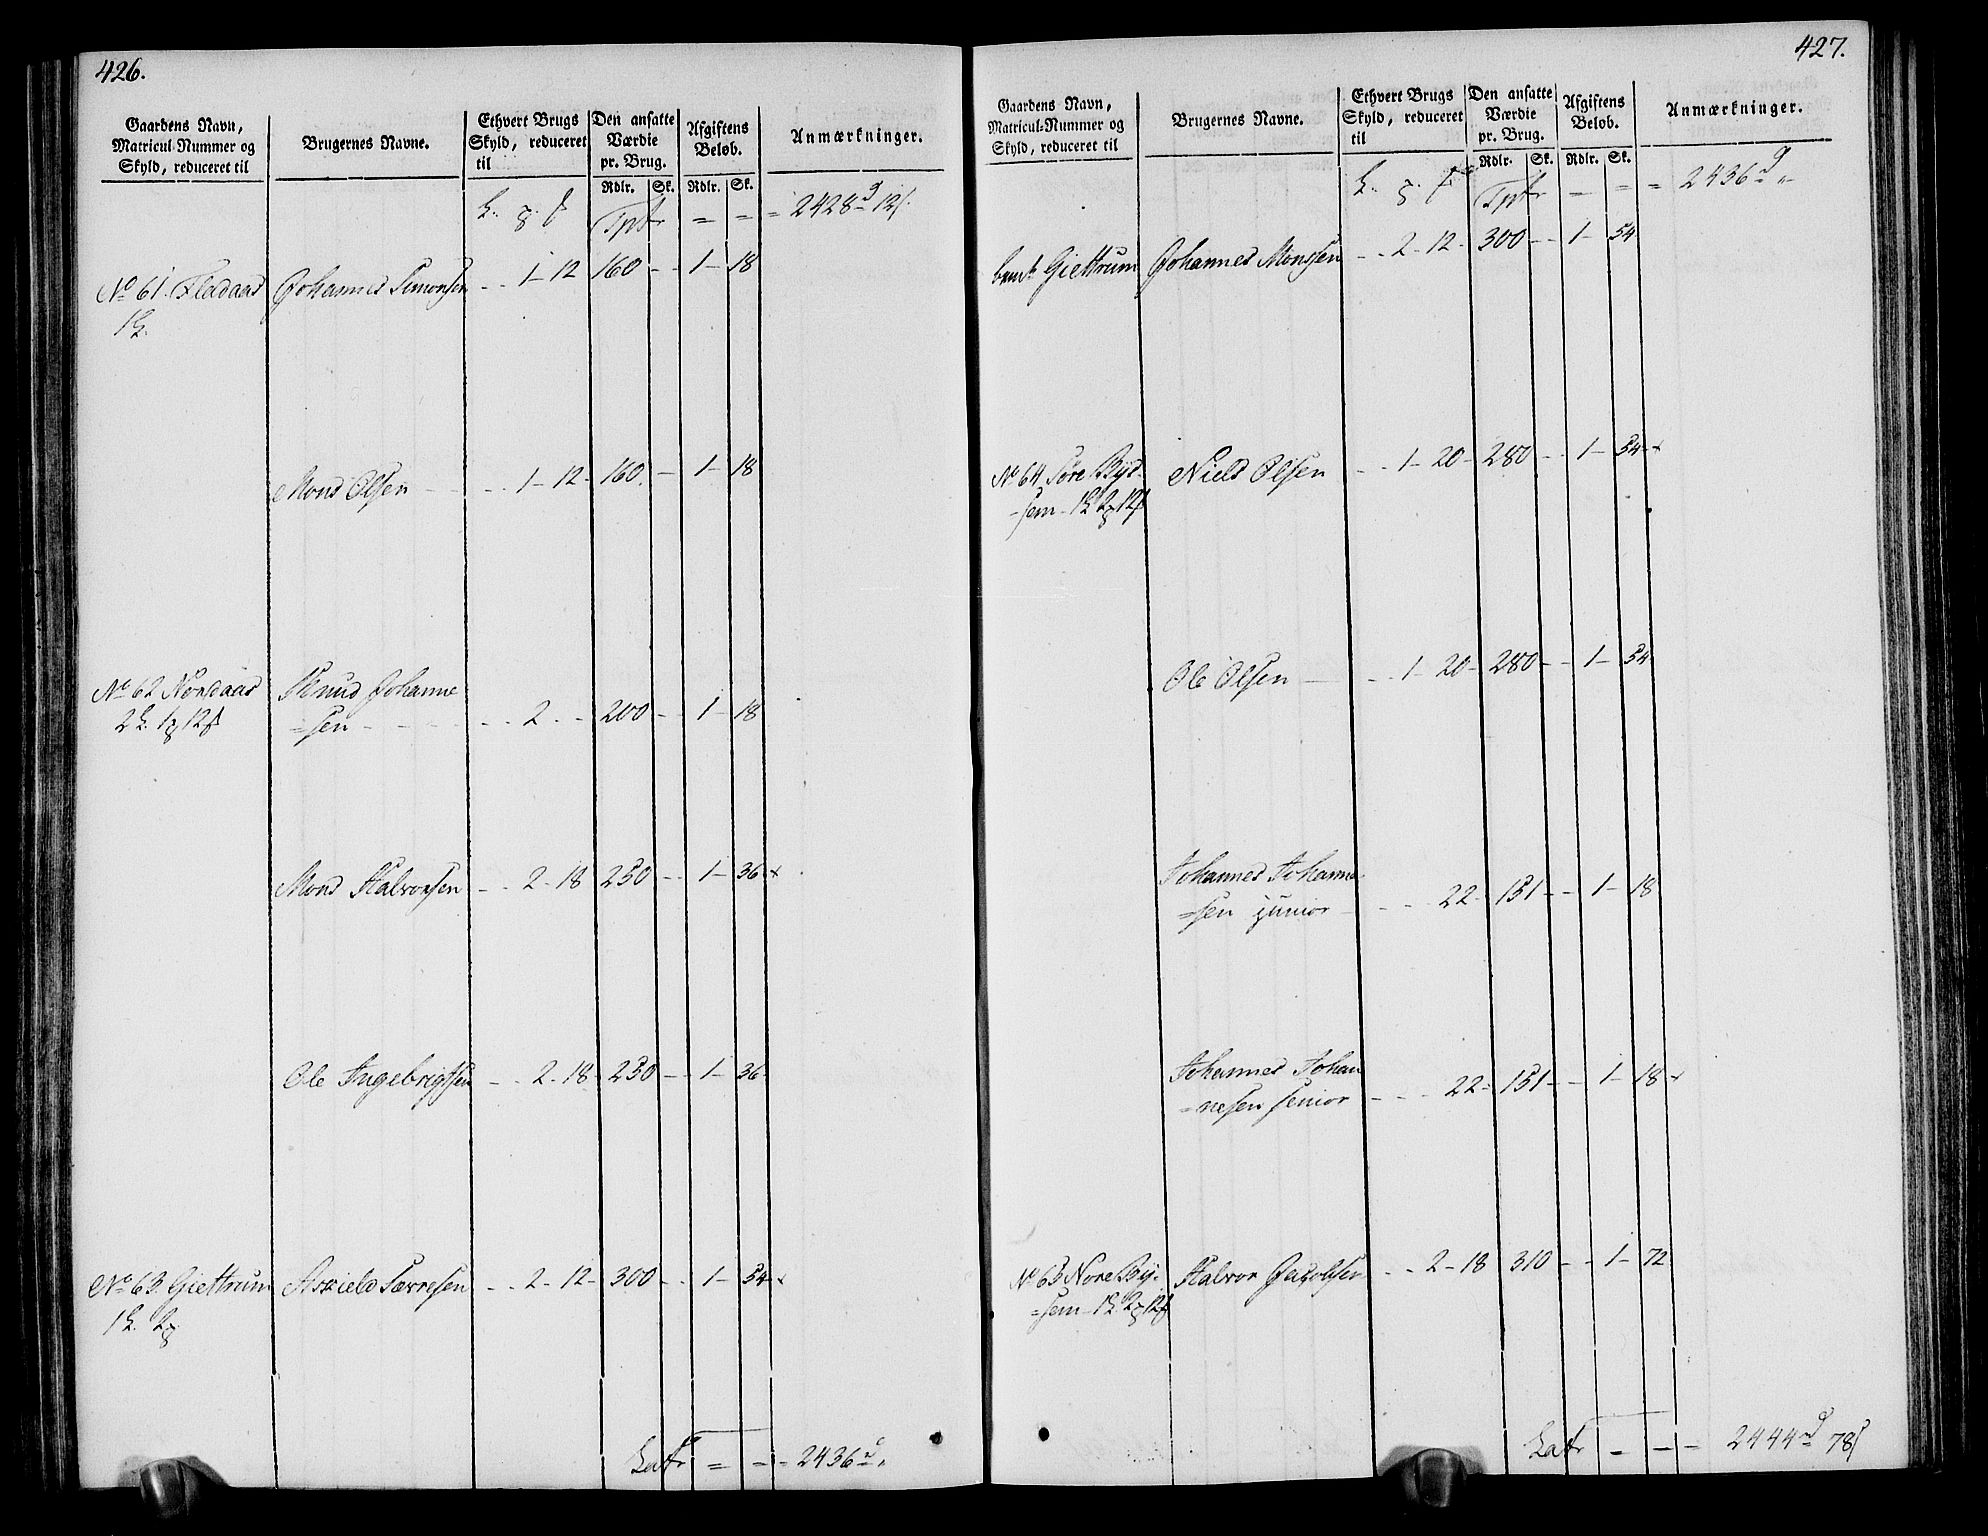 426.
Gaardens Navn, Matricul-Nummer og Skyld, reduceret til
Brugernes Navne.
Ethvert Brugs Skyld, reduceret til
Den ansatte Værdie pr. Brug.
Afgiftens Beløb.
Anmærkninger.
Rdlr. Sk. Rdlr. Sk.
Tptr = = = 2428 12
No 61. Fladaas Johannes Simonsen - - 1 - 12 160 - - 1 - 18
Mons Olsen - - 1 - 12 - 160 - 1 - 18
No 62 Nordaas Knud Johanne
=sen - - - 2 - - 200 - - 1 - 18
Mons Halvorsen - - 2 - 18 250 - - 1 - 36 x
Ole Ingebrigtsen - - 2 - 18 250 - - 1 - 36
No 63 Giettrum Askield Sævresen - - 2 - 12 - 300 - - 1 - 54 x
Latr = = = 2436
427.
Gaardens Navn, Matricul-Nummer og Skyld, reduceret til
Brugernes Navne.
Ethvert Brugs Skyld, reduceret til
Den ansatte Værdie pr. Brug.
Afgiftens Beløb.
Anmærkninger.
Rdlr. Sk. Rdlr. Sk.
Tptr = = = 2436
Giettrum Johannes Monssen - - 2 - 12 - 300 - - 1 - 54
No 64 Søre Byd- Niels Olsen - - 1 - 20 - 280 - - 1 - 54 - x
-sem
Ole Olsen - - - 1 - 20 - 280 - - 1 - 54
Johannes Johanne
=sen junior - - - 22 - 151 - - 1 - 18
Johannes Johan
=nesen senior - - - 22 = 151 - - 1 - 18 - x
No 65 Nore By- Halvor Jacobsen - - 2 - 18 310 - - 1 - 72
=sem
Latr = = = 2444 78